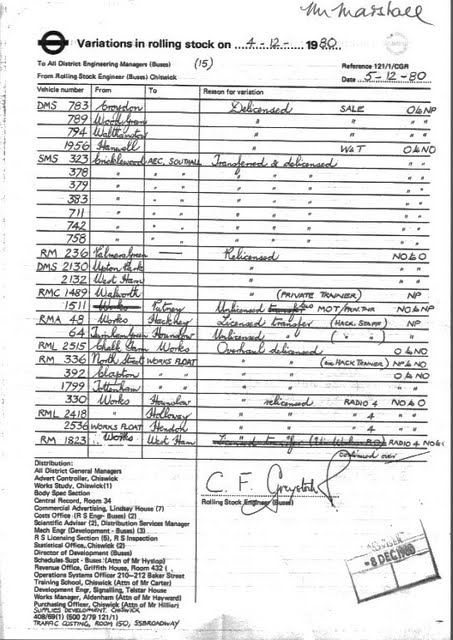 Mr Marshall
Variations in rolling stock on 4-12- 1980
To All District Engineering Managers (Buses) (15) Reference 121/1/CGR
From Rolling Stock Engineer (Buses) Chiswick Date 5-12-80
Vehicle number From To Reason for variation
DMS 783 Croydon Delicensed SALE O to NP
789 Wood Green " " " "
794 Walthamstow " " " "
1956 Hanwell " W&T O to NO
SMS 323 Cricklewood AEC, SOUTHALL Transferred & delicensed " "
378 " " " " " "
379 " " " " " "
383 " " " " " "
711 " " " " " "
742 " " " " " "
758 " " " " " "
RM 236 Palmers Green — Relicensed NO to O
DMS 2130 Upton Park " "
2132 West Ham " "
RMC 1489 Walworth " (PRIVATE TRAINER) NP
1511 Works Putney Unlicensed transfer MOT/ NO to NP
RMA 48 Works Hackney Licensed transfer (HACK. STAFF) NP
64 Turnham Green Hounslow Unlicensed " ( " " ) "
RML 2515 Chalk Farm Works Overhaul delicensed O to NO
RM 336 North Street WORKS FLOAT " " (ex HACK TRAINER) NP to NO
392 Clapton " " " O to NO
1799 Tottenham " " " " "
330 Works Hounslow " relicensed RADIO 4 NO to O
RML 2418 " Holloway " " " 4 " "
2536 WORKS FLOAT Hendon " " " 4 " "
RM 1823 Works West Ham Licensed transfer RADIO 4 NO to
continued over
Distribution:
All District General Managers
Advert Controller, Chiswick
Works Study, Chiswick(1)
Body Spec Section
Central Record, Room 34
Commercial Advertising, Lindsay House (7)
Costs Office (R S Engr- Buses) (2)
Scientific Adviser (2), Distribution Services Manager
Mech Engr (Development - Buses) (3)
R S Licensing Section (5), R S Inspection
Statistical Office, Chiswick (2)
Director of Development (Buses)
Schedules Supt - Buses (Attn of Mr Hyslop)
Revenue Office, Griffith House, Room 432 (
Operations Systems Officer 210-212 Baker Street
Training School, Chiswick (Attn of Mr Carter)
Development Engr, Signalling, Telstar House
Works Manager, Aldenham (Attn of Mr Hayward)
Purchasing Officer, Chiswick (Attn of Mr Hillier)
SUPPLIES DEVELOPMENT. CHISWICK
408/69(1) (500 2/79 121/1)
TRAFFIC COSTING, ROOM 150, 55BROADWAY
C. F. Graystock
Rolling Stock Engineer (Buses)
8 DEC 1980